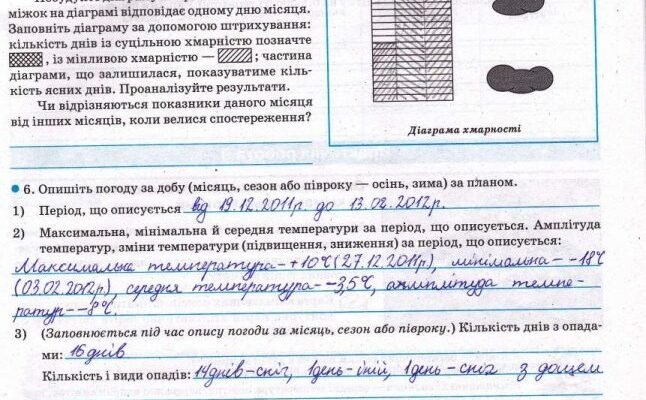 міжок на діаграмі відповідає одному дню місяця.
Заповніть діаграму за допомогою штрихування:
кількість днів із суцільною хмарністю позначте
, із мінливою хмарністю — ; частина
діаграми, що залишилася, показуватиме кіль-
кість ясних днів. Проаналізуйте результати.
Чи відрізняються показники даного місяця
від інших місяців, коли велися спостереження?
Діаграма хмарності
• 6. Опишіть погоду за добу (місяць, сезон або півроку — осінь, зима) за планом.
1) Період, що описується від 19.12.2011р. до 13.02.2012р.
2) Максимальна, мінімальна й середня температури за період, що описується. Амплітуда
температур, зміни температури (підвищення, зниження) за період, що описується:
Максимальна температура - +10°С (27.12.2011р), мінімальна - -18°С
(03.02.2012р), середня температура - -3,5°С, амплітуда темпе-
ратур - -8°С.
3) (Заповнюється під час опису погоди за місяць, сезон або півроку.) Кількість днів з опада-
ми: 16 днів
Кількість і види опадів: 14 днів - сніг, 1 день - іній, 1 день - сніг з дощем